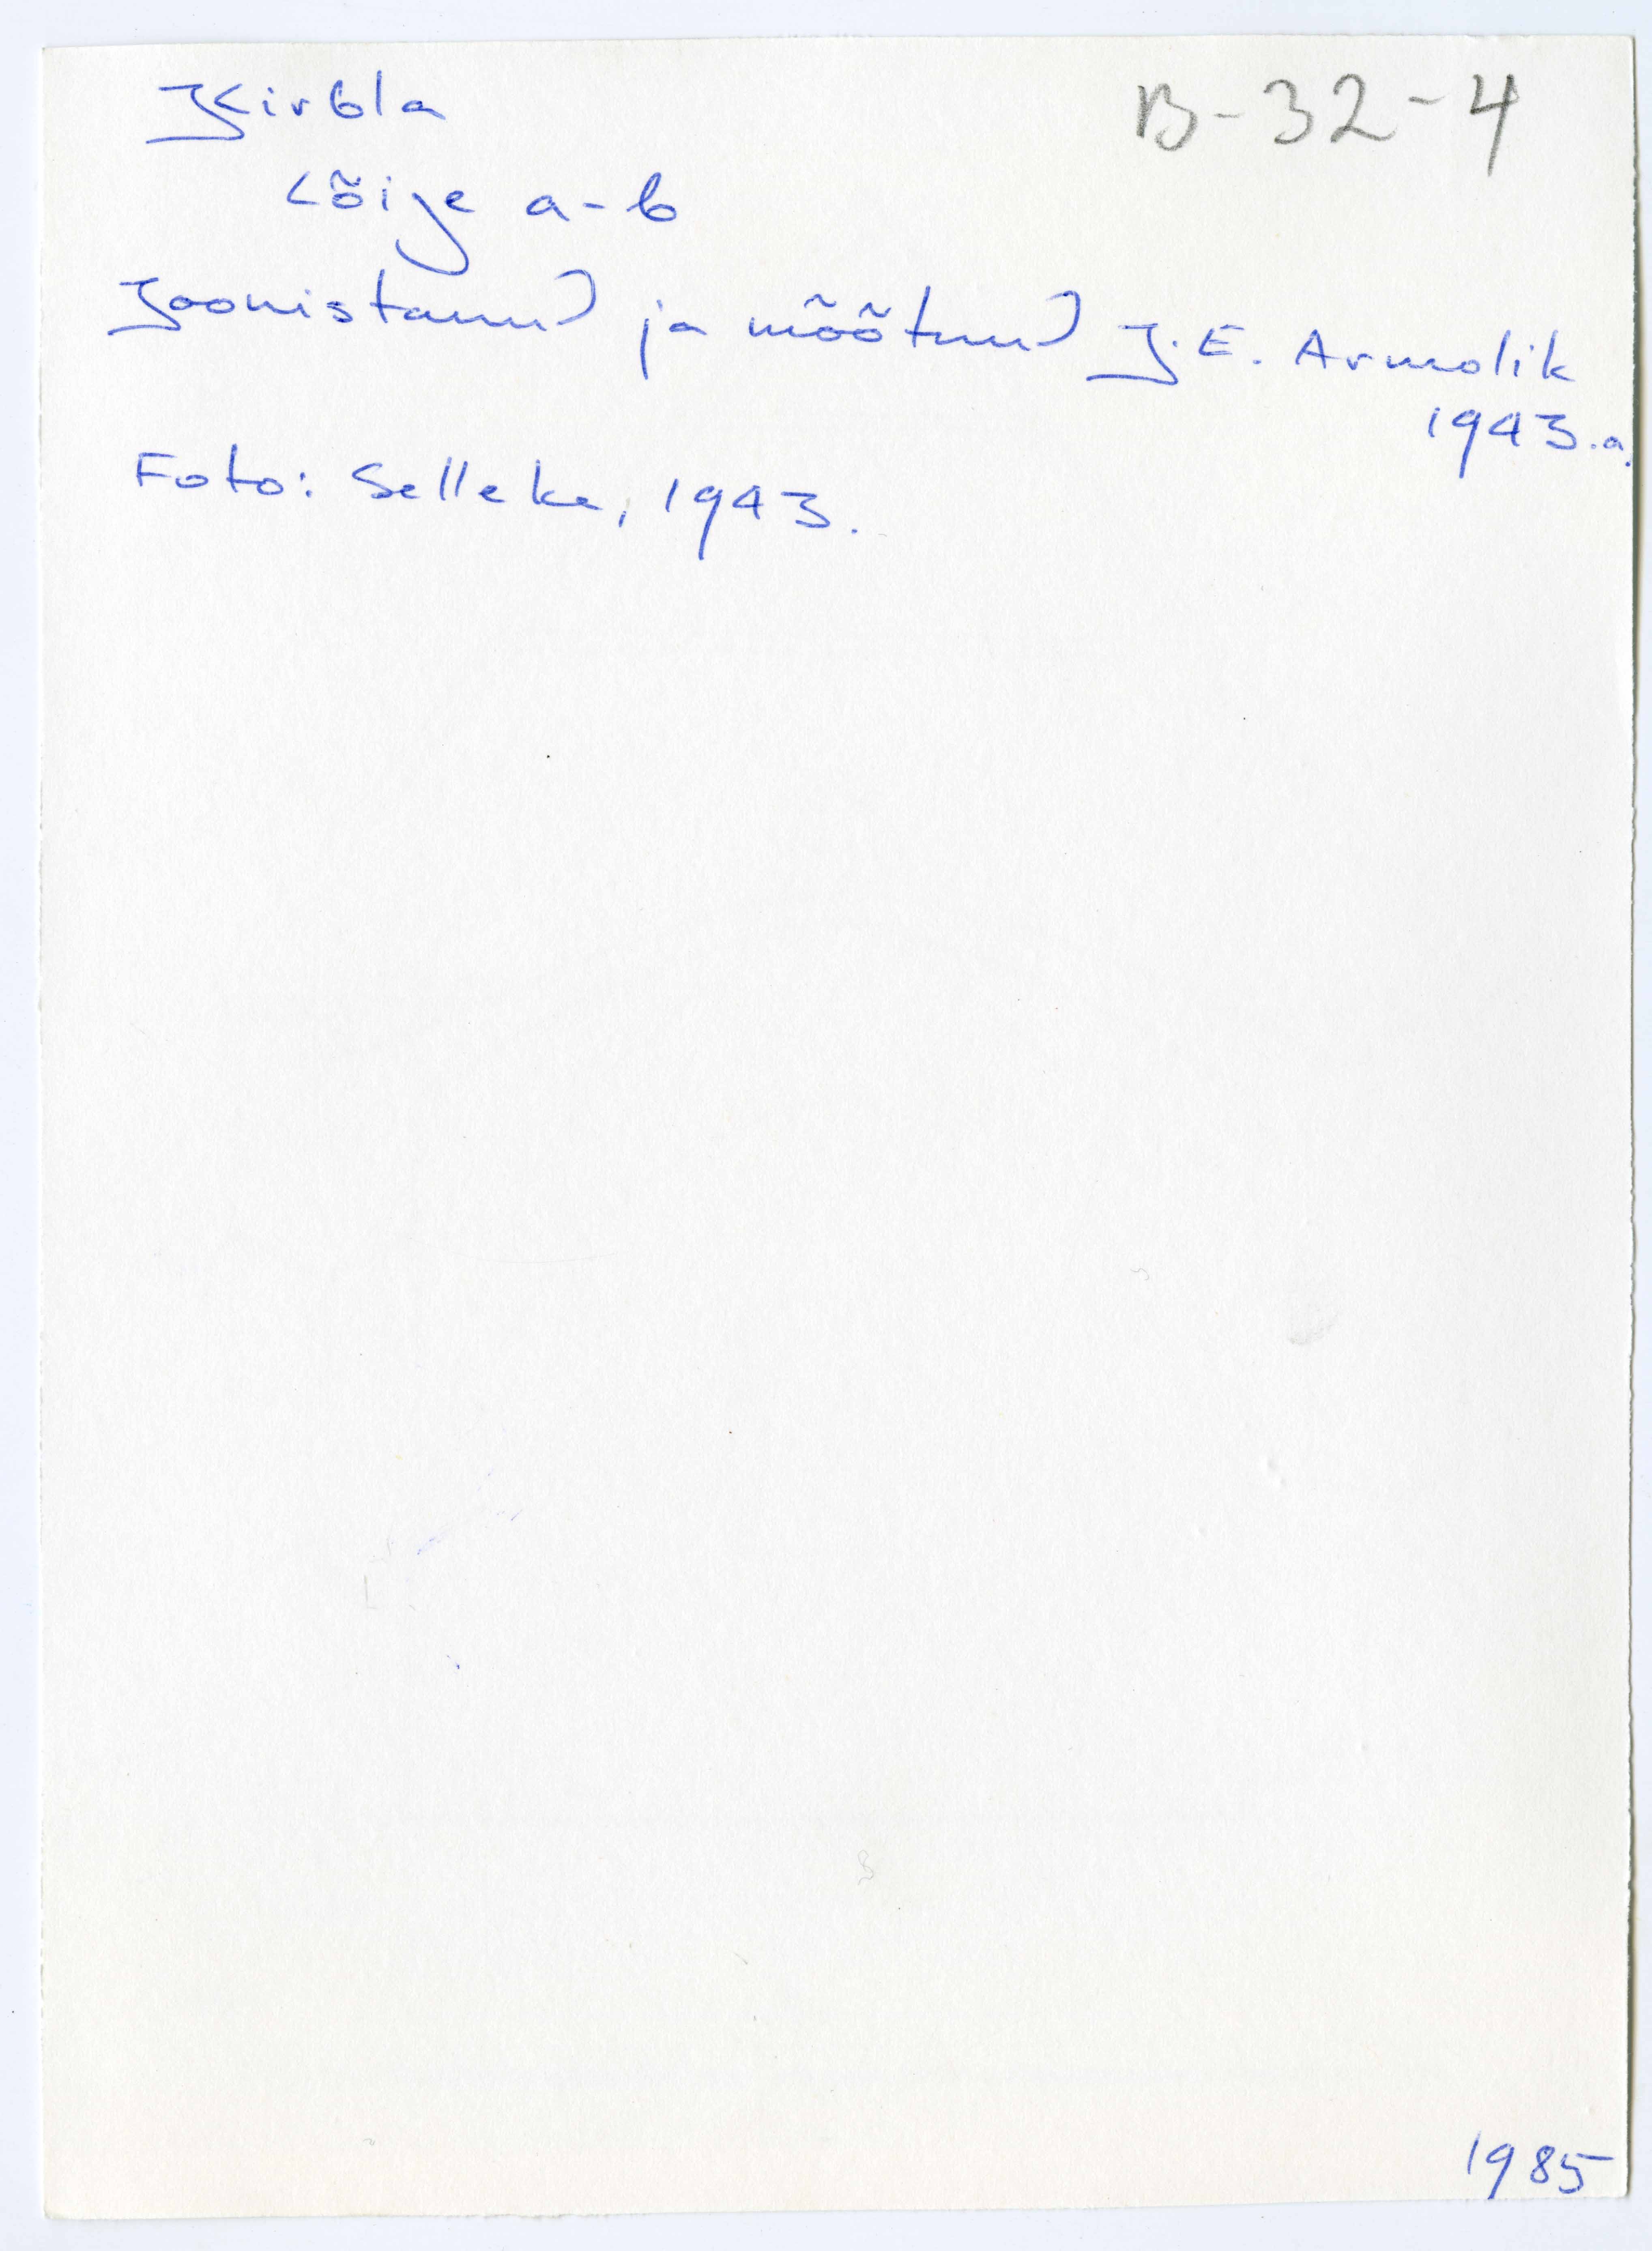 Kirbla
B-32-4
Lõige a-b
Joonistanud ja mõõtnud J.E. Armolik
1943.a.
Foto: Selleke, 1943.
1985